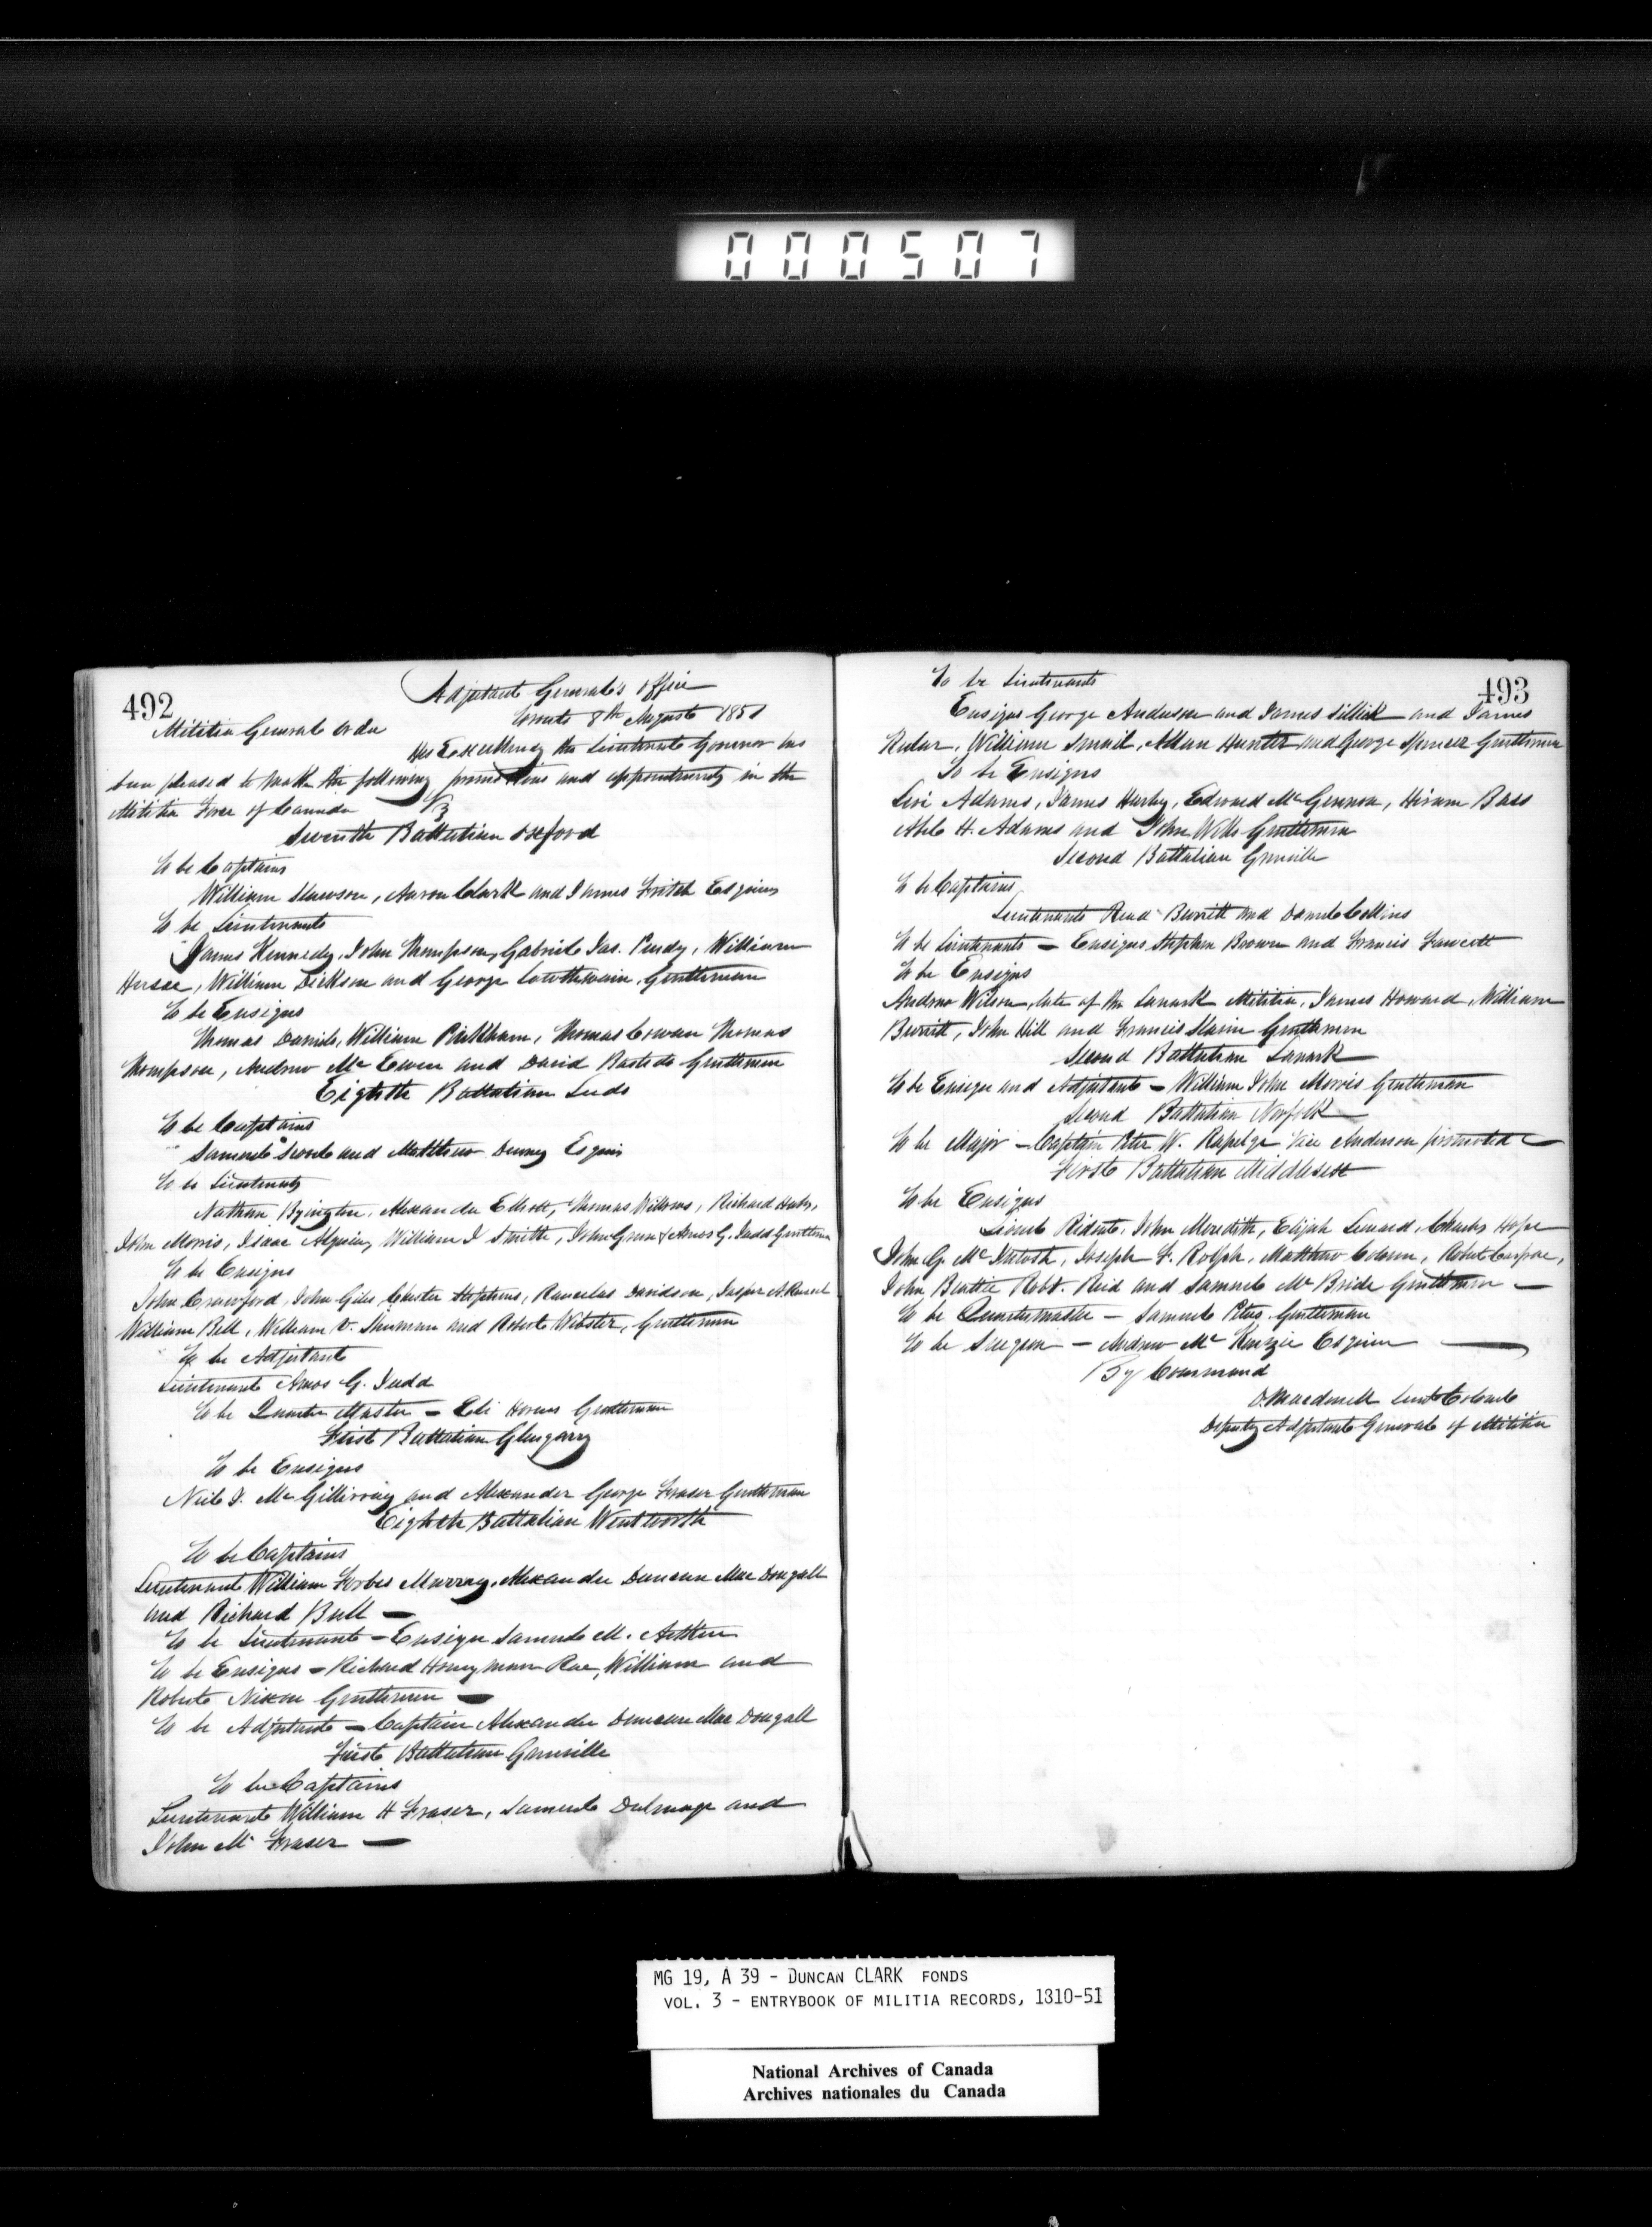 000507
492
Adjutant General's Office
Toronto 8th August 1851
Militia General Order
His Excellency the Lieutenant Governor has
been pleased to make the following promotions and appointments in the
Militia Force of Canada
Seventh Battalion Oxford
To be Captains
William Slawson, Aaron Clark and James Fritch Esquires
To be Lieutenants
James Kennedy, John Thompson, Gabriel Jas. Purdy, William
William Dickson and George Gentlemen
To be Ensigns
Thomas Daniels, William Pinkham, Thomas Cowan Thomas
Thompson, Andrew McEwen and David Bastedo Gentlemen
Eighth Battalion Leeds
To be Captains
Samuel and Matthew Denny Esquires
To be Lieutenants
Nathan Byington, Alexander Elliott, Thomas Richard
John Morris, Isaac Alguire, William J Smith, John Green & Amos G. Judd Gentlemen
To be Ensigns
John Crawford, John Giles, Chester Stephens, Ranselas Davidson, Jasper A. Russell
William Bell, William V. Shuman and Robert Webster, Gentlemen
To be Adjutant
Lieutenant Amos G. Judd
To be Quarter Master - Eli Gentleman
First Battalion Glengarry
To be Ensigns
Neil J. McGillivray and Alexander George Fraser Gentlemen
Eighth Battalion Wentworth
To be Captains
Lieutenants William Forbes Murray, Alexander Duncan MacDougall
and Richard Bull -
To be Lieutenant - Ensign Samuel M.
To be Ensigns - Richard Honeyman Rae, William and
Robert Nixon Gentlemen -
To be Adjutant - Captain Alexander Duncan MacDougall
First Battalion Grenville
To be Captains
Lieutenants William H Fraser, Samuel Dulmage and
John M Fraser -
493
To be Lieutenants
Ensigns George Anderson and James Sillick and James
William Smail, Allan Hunter and George Spencer Gentlemen
To be Ensigns
Levi Adams, James Edward McGennon, Hiram Bass
Abel H. Adams and John Wells Gentlemen
Second Battalion Grenville
To be Captains
Lieutenants Read Burritt and Daniel Collins
To be Lieutenants - Ensigns Stephen Brown and Francis Fawcett
To be Ensigns
Andrew Wilson, late of the Lanark Militia, James Howard, William
Burritt, John Hill and Francis Slavin Gentlemen
Second Battalion Lanark
To be Ensign and Adjutant - William John Morris Gentleman
Second Battalion Norfolk
To be Major - Captain Peter W. Rapelje vice Anderson promoted
First Battalion Middlesex
To be Ensigns
Lionel Ridout, John Meredith, Elijah Leonard, Charles Hope
John G. McIntosh, Joseph F. Rolph, Matthew Robert
John Beattie Robt. Reid and Samuel McBride Gentlemen -
To be Quartermaster - Samuel Peters Gentleman
To be Surgeon - Andrew McKenzie Esquire
By Command
D. Macdonell Lieut Colonel
Deputy Adjutant General of Militia
MG 19, A 39 - DUNCAN CLARK FONDS
VOL. 3 - ENTRYBOOK OF MILITIA RECORDS, 1810-51
National Archives of Canada
Archives nationales du Canada